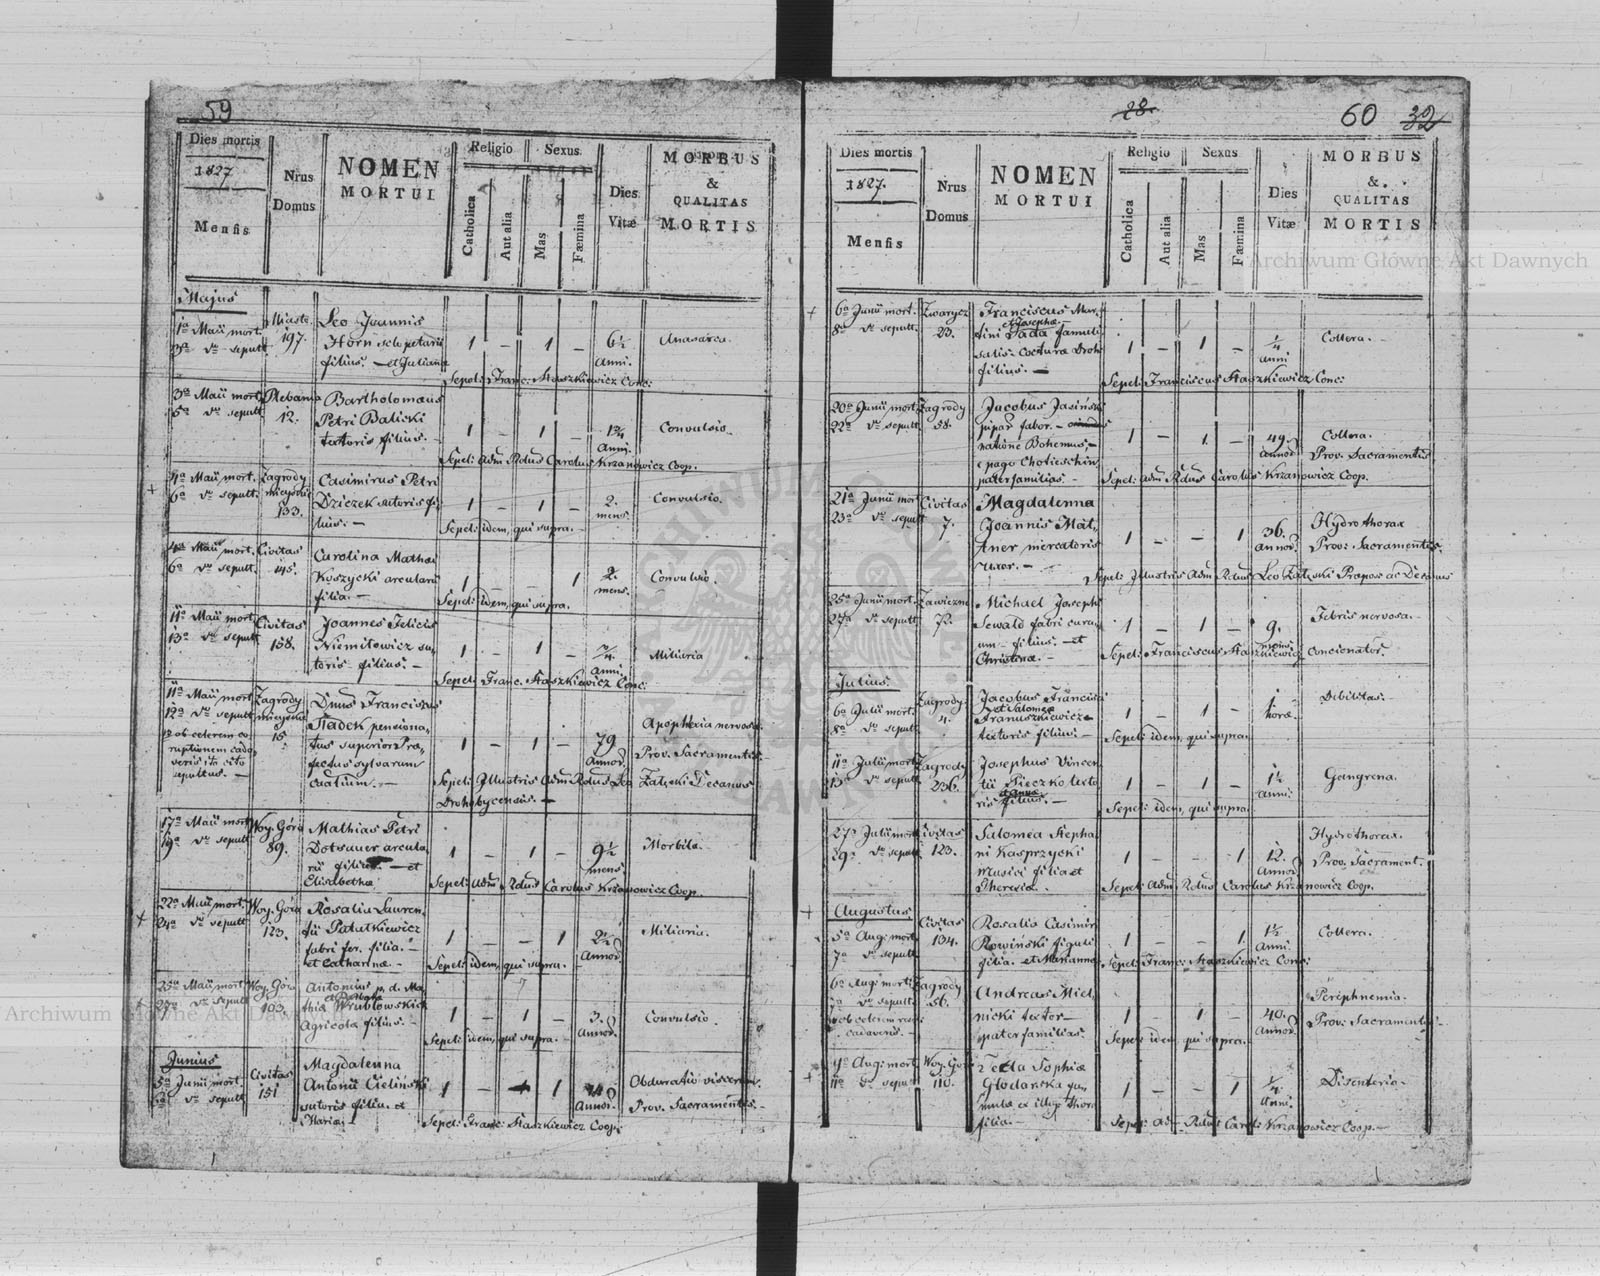 59
Dies mortis
1827
Mensis
Nrus
Domus
NOMEN
MORTUI
Religio
Sexus
Catholica
Aut alia
Mas
Fæmina
Dies
Vitæ
MORBUS
&
QUALITAS
MORTIS
Majus
1a Maii mort.
3a do sepult.
Miasto
197.
Leo Joannis
Horn sclopetarii
filius. — et Juliannæ
1 – 1 –
6½
Anni.
Anasarca.
Sepel: Franc: Staszkiewicz Conc:
3a Maii mort.
5a do sepult.
Plebania
12.
Bartholomæus
Petri Balicki
textoris filius. –
1 – 1 –
Anni.
Convulsio.
Sepel: Adm Rdus Carolus Krzanowicz Coop.
+
4a Maii mort.
6a do sepult.
Zagrody
miejskie
133.
Casimirus Petri
Dziczek sutoris fi-
lius. –
1 – 1 –
2.
mens.
Convulsio.
Sepel: idem, qui supra. –
4a Maii mort.
6a do sepult.
Civitas
145.
Carolina Mathæi
Koszycki arcularii
filia. –
1 – – 1
2.
mens.
Convulsio.
Sepel: idem, qui supra.
11a Maii mort.
13a do sepult.
Civitas
158.
Joannes Felicis
Niemiłowicz su-
toris filius. –
1 – 1 –
Anni.
Miliaria
Sepel: Franc. Staszkiewicz Conc:
11a Maii mort.
12a do sepult.
ob celerem co-
ruptionem cada-
veris ita cito
sepultus. –
Zagrody
miejskie
15.
Dnus Franciscus
Tladek pensiona-
tus superior Præ-
fectus sylvarum
Cuatium. –
1 – 1 –
79
Annor.
Apoplexia nervosa.
Prov. Sacramentis.
Sepel: Illustris Adm Rdus Leo Załęski Decanus
Drohobycensis. –
17a Maii mort.
19a do sepult.
Woy. Góra
89.
Mathias Petri
Dotsauer arcula-
rii filius. – et
Elisabethæ
1 – 1 –
9½
mens.
Morbili.
Sepel: Adm Rdus Carolus Krzanowicz Coop.
+
22a Maii mort.
24a do sepult.
Woy. Góra
123.
Rosalia Lauren-
tii Pałatkiewicz
fabri fer. filia. –
et Catharinæ –
1 – – 1
2½
Annor.
Miliaria.
Sepel: idem, qui supra. –
25a Maii mort.
27a do sepult.
Woy. Góra
103.
Antonius p. d. Ma-
thiæ Wrublowskich
Agricolæ filius. –
1 – 1 –
3.
Annor.
Convulsio.
Sepel: idem, qui supra. –
Junius
5a Junii mort.
do sepult.
Civitas
151
Magdalenna
Antonii Cieliński
sutoris filia. et
Mariæ
1 – 1
Annor.
Obduratio viscerum.
Prov. Sacramentis. –
Sepel: Franc: Staszkiewicz Coop:
28
60
32
Dies mortis
1827.
Mensis
Nrus
Domus
NOMEN
MORTUI
Religio
Sexus
Catholica
Aut alia
Mas
Fæmina
Dies
Vitæ
MORBUS
&
QUALITAS
MORTIS
+
6a Junii mort.
8a do sepult.
Zwarycz
23.
Franciscus Mar-
et Josephæ
tini Pada famuli
salis Cocturæ Droh:
filius. –
1 – 1 –
¼
Anni
Collera. –
Sepel: Franciscus Staszkiewicz Conc:
20a Junii mort.
22a do sepult.
Zagrody
58.
Jacobus Jasiński
natione Bohemus, –
e pago Chotieschin,
paterfamilias. –
1 – 1 –
49.
Annor.
Collera.
Prov. Sacramentis
Sepel: Adm Rdus Carolus Krzanowicz Coop.
21a Junii mort.
23a do sepult.
Civitas
7.
Magdalenna
Joannis Mat-
zner mercatoris
Uxor. –
1 – – 1
36.
Annor.
Hydrothorax
Prov: Sacramentis.
Sepel: Illustris Adm Rdus Leo Załęski Præpos ac Decanus
25a Junii mort.
27a do sepult.
Zawiezna
72.
Michael Josephi
Sewald fabri cura-
um filius. – et
Christinæ. –
1 – 1 –
9.
mens.
Febris nervosa. –
Sepel: Franciscus Staszkiewicz Concionator.
Julius.
6a Julii mort.
8a do sepult.
Zagrody
4.
Jacobus Francisci
et Salomeæ
Franuszkiewicz
textoris filius. –
1 – 1 –
1
horæ.
Debilitas. –
Sepel: idem, qui supra.
11a Julii mort.
13a do sepult.
Zagrody
236.
Josephus Vincen-
tii Sieczko texto-
et Annæ
ris filius. –
1 – 1 –
1½
Anni.
Gangrena.
Sepel: idem, qui supra.
27a Julii mort.
29a do sepult.
Civitas
123.
Salomea Stepha-
ni Kasprzycki
Musici filia et
Theresiæ.
1 – – 1
12.
Annor.
Hydrothorax.
Prov. Sacrament.
Sepel: Adm Rdus Carolus Krzanowicz Coop.
+
Augustus
5a Aug: mort.
7a do sepult.
Civitas
134.
Rosalia Casimiri
Rowiński figuli
filia. et Mariannæ
1 – – 1
1½
Anni.
Collera.
Sepel: Franc: Staszkiewicz Conc:
6a Aug: mort.
7a do sepult.
ob celerem
cadaveris.
Zagrody
56.
Andreas Miel-
nicki textor –
paterfamilias.
1 – 1 –
40.
Annor.
Peripnemia.
Prov: Sacramentis. –
Sepel: idem qui supra.
+
9a Aug: mort.
11a do sepult.
Woy. Góra
110.
Tekla Sophiæ
Głodarska fa-
mulæ ex illeg: thoro
filia. –
1 – – 1
¼
Anni.
Disenteria.
Sepel: Adm Rdus Carol: Krzanowicz Coop. –
Archiwum Główne Akt Dawnych
Archiwum Główne Akt Dawnych